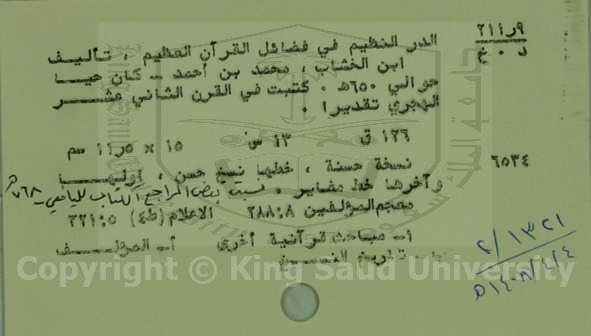 ٢١١٫٩
د ٠ خ
الدر النظيم في فضائل القرآن العظيم ، تأليف
ابن الخشاب ، محمد بن أحمد ــ كان حيا
حوالي ٦٥٠هـ ٠ كتبت في القرن الثاني عشر
الهجري تقديرا ٠
١٢٦ ق ١٣ س ١٥ × ١١٫٥ سم
٦٥٣٤
نسخة حسنة ، خطها نسخ حسن ، أولها
وآخرها خط مغاير ٠ نسبت بعض المراجع الكتاب لليافعي ــ ٧٦٨هـ
معجم المؤلفين ٨:٢٨٨ الاعلام (ط٤) ٥:٣٢١
أ ــ مباحث قرآنية أخرى أ ــ المؤلف
ب ــ تاريخ النسخ
٢/١٣٢١
١٤٠٨/٤/٤هـ
Copyright © King Saud University